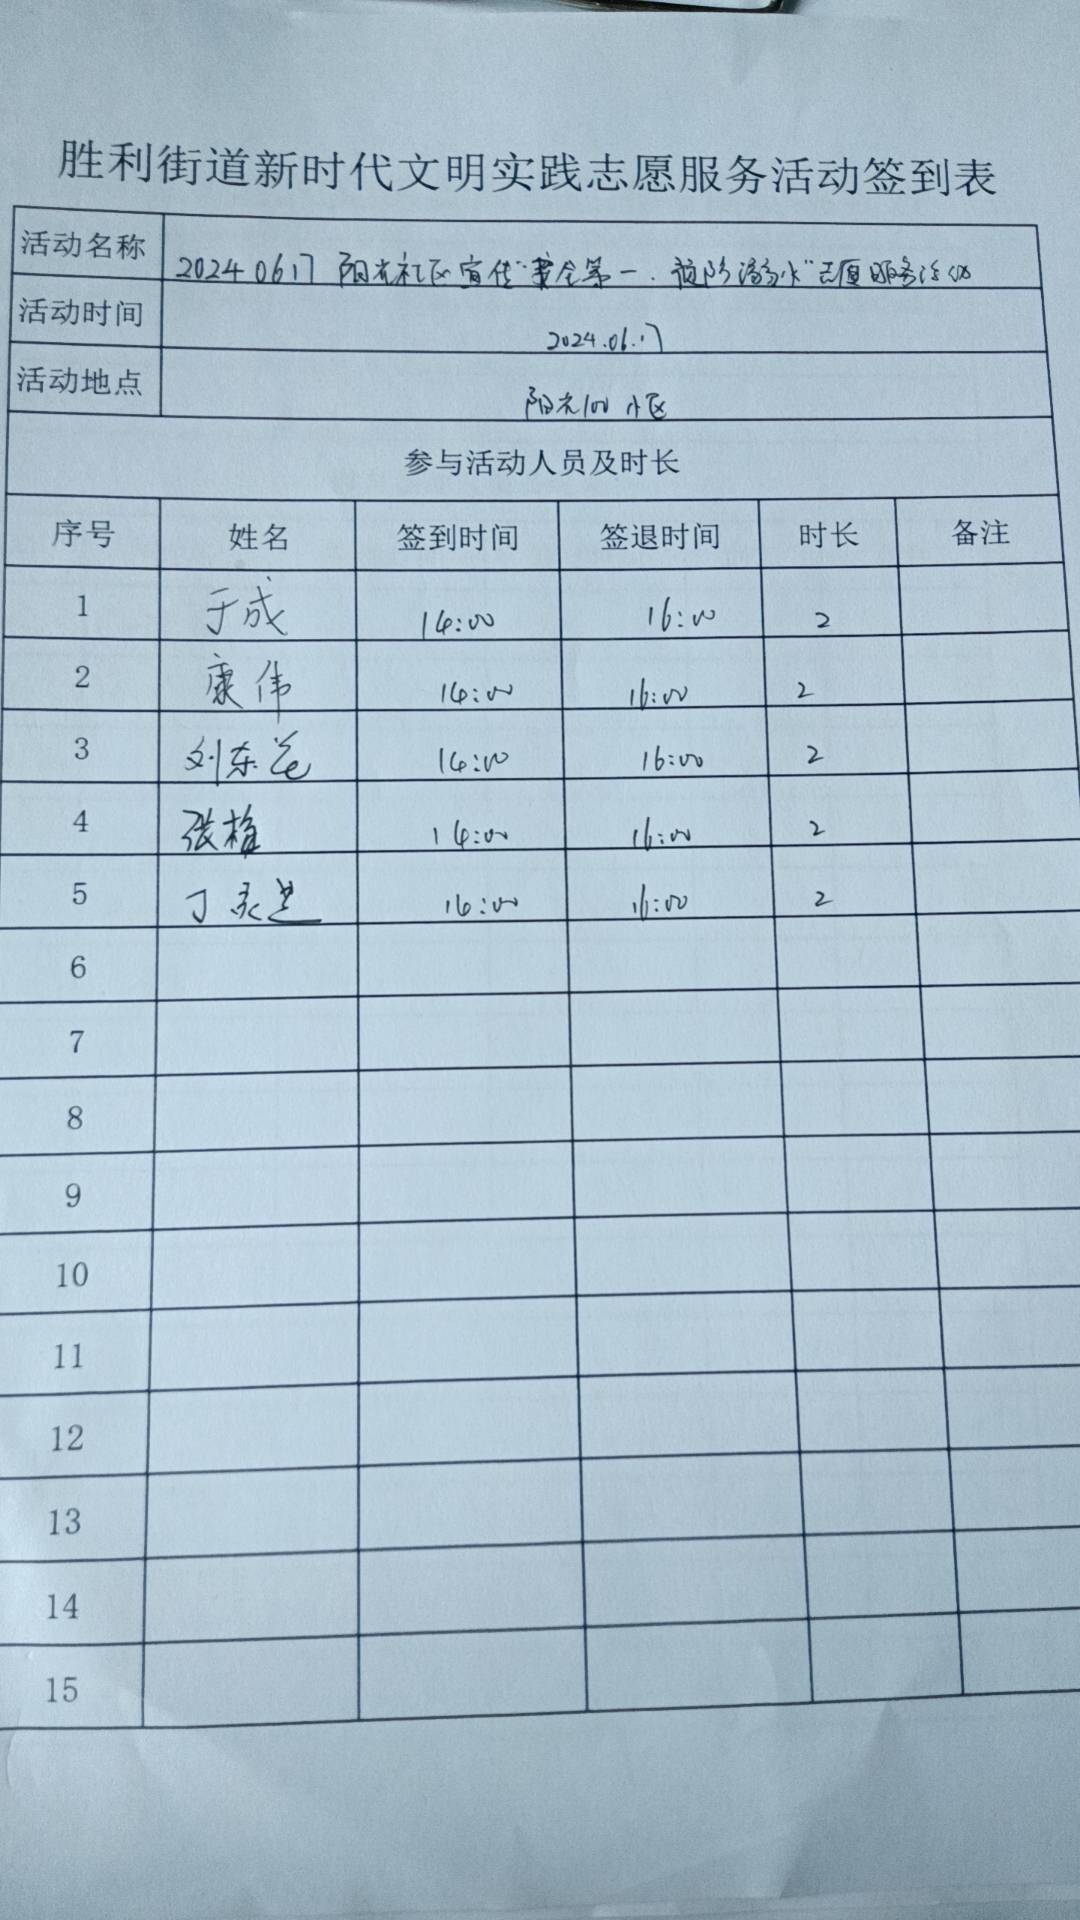 胜利街道新时代文明实践志愿服务活动签到表
活动名称 20240617 阳光社区宣传"安全第一.预防溺水"志愿服务活动
活动时间 2024.06.17
活动地点 阳光100小区
参与活动人员及时长
序号 姓名 签到时间 签退时间 时长 备注
1 于成 14:00 16:00 2
2 康伟 14:00 16:00 2
3 刘东 14:00 16:00 2
4 张梅 14:00 16:00 2
5 丁 14:00 16:00 2
6
7
8
9
10
11
12
13
14
15